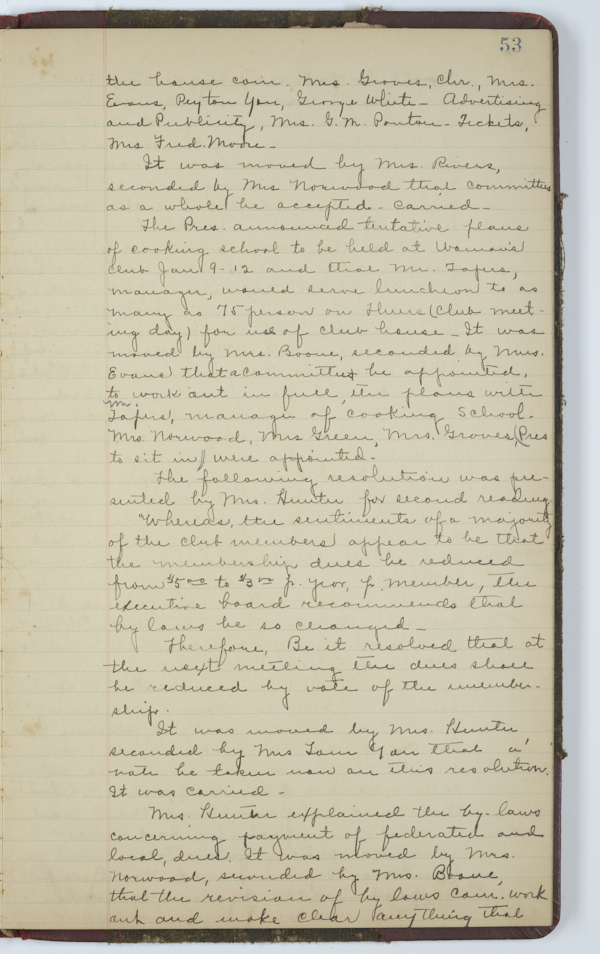 53
the house com. Mrs. Groves, Chr., Mrs.
Evans, Peyton Yon, George White - Advertising
and Publicity, Mrs. G. M. Ponton - Tickets,
Mrs Fred. Moore -
It was moved by Mrs. Rivers,
seconded by Mrs Norwood that committees
as a whole be accepted - Carried -
The Pres. announced tentative plans
of cooking school to be held at Woman's
Club Jan 9-12 and that Mr.
manager, would serve luncheon to as
many as 75 person on Thurs (Club meet-
ing day) for use of club house - It was
moved by Mrs. Boone, seconded by Mrs.
Evans that a committee be appointed,
to work out in full, the plans with
Mr.
manager of Cooking School.
Mrs. Norwood, Mrs Green, Mrs. Groves, (Pres
to sit in) were appointed -
The following resolution was pre-
sented by Mrs. Hunter for second reading
"Whereas, the sentiments of a majority
of the club members appear to be that
the membership dues be reduced
from $5.00 to $3.00 p. year, p. member, the
executive board recommends that
by laws be so changed -
Therefore, Be it resolved that at
the next meeting the dues shall
be reduced by vote of the member-
ship.
It was moved by Mrs. Hunter,
seconded by Mrs Tom Yon that a
vote be taken now on this resolution.
It was carried -
Mrs. Hunter explained the by-laws
concerning payment of federated and
local, dues. It was moved by Mrs.
Norwood, seconded by Mrs. Boone,
that the revision of by laws com. work
out and make clear anything that